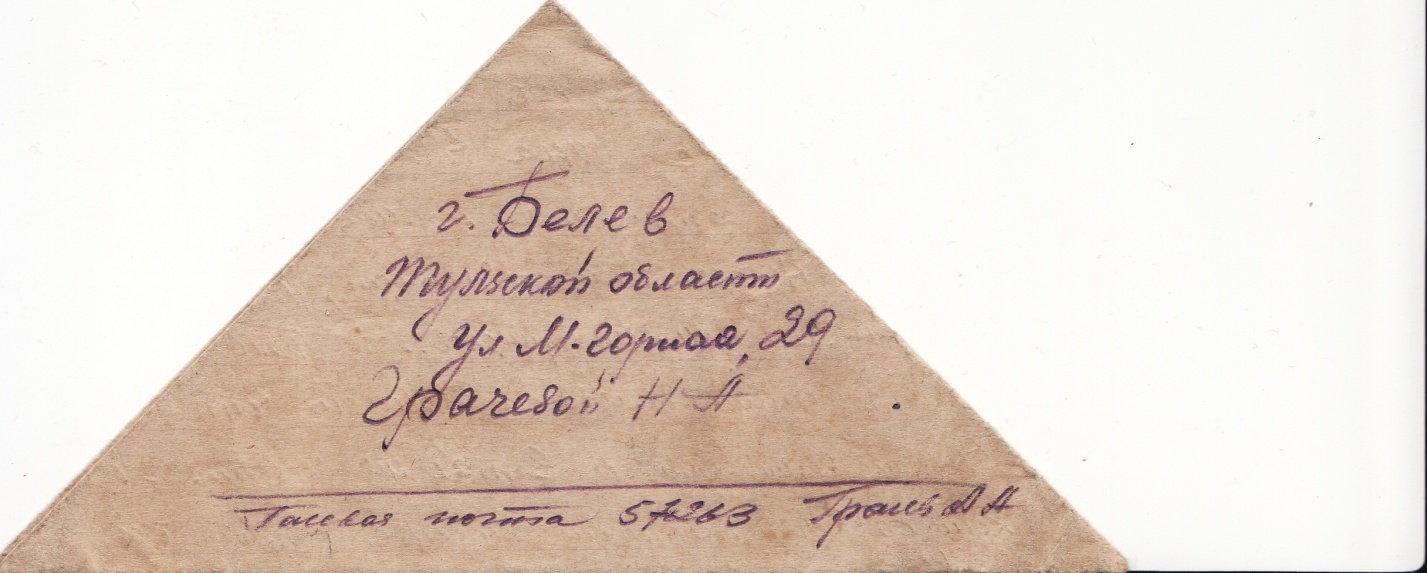 г. Белев
Тульской области
ул. М-Горная, 29
Грачевой Н А
почта 57263 А А